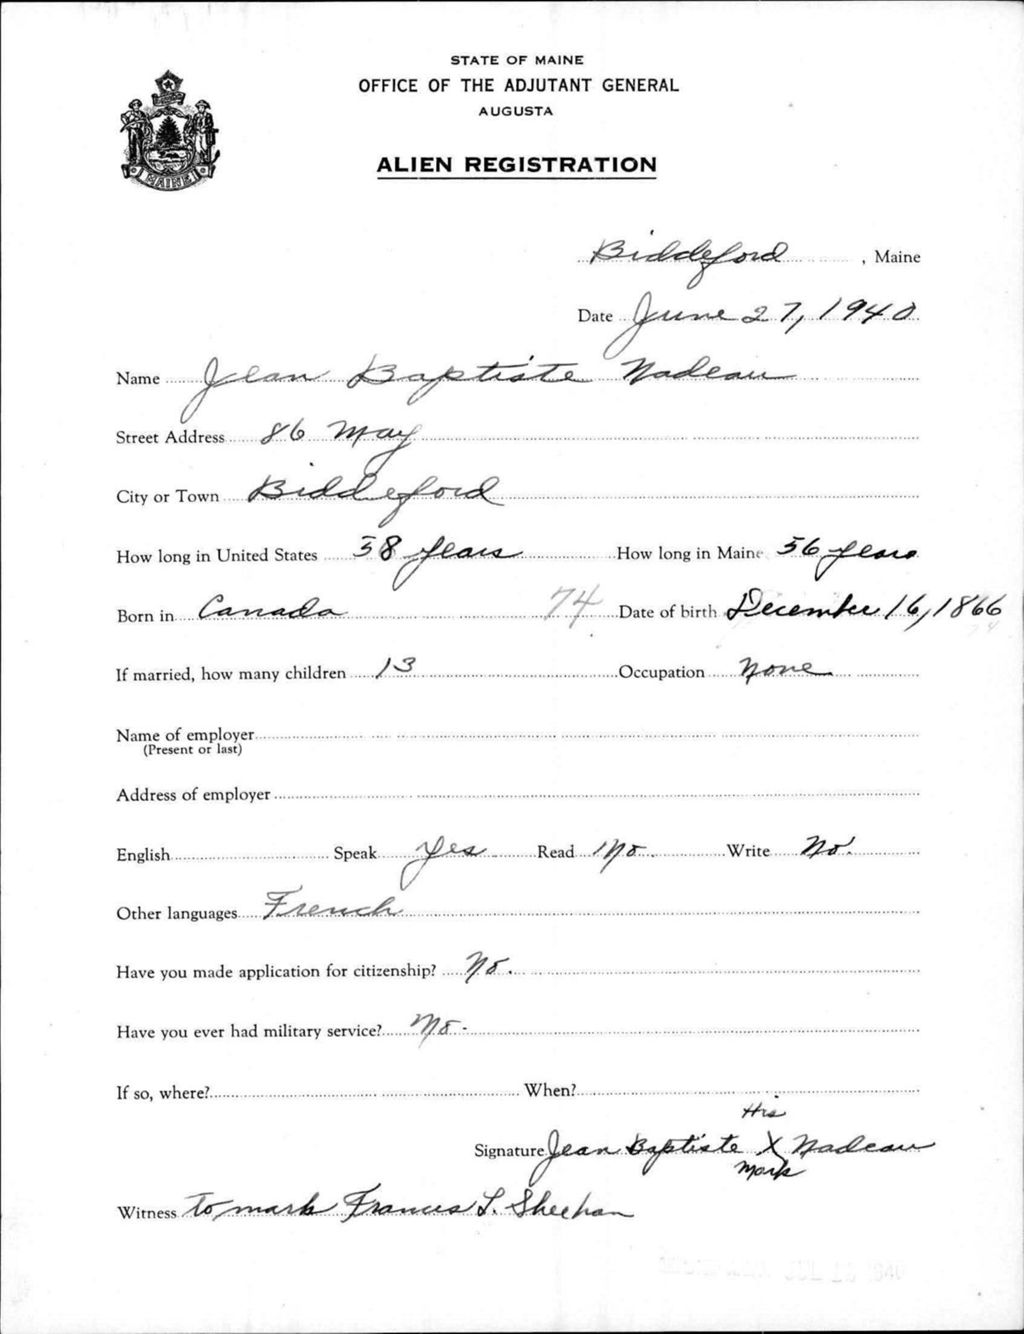 STATE OF MAINE
OFFICE OF THE ADJUTANT GENERAL
AUGUSTA
ALIEN REGISTRATION
MAINE
Biddeford, Maine
Date June 27, 1940
Name Jean Baptiste Nadeau
Street Address 86 May
City or Town Biddeford
How long in United States 58 years How long in Maine 56 years
Born in Canada 74 Date of birth December 16, 1866
74
If married, how many children 13 Occupation None
Name of employer
(Present or last)
Address of employer
English Speak Yes Read No. Write No.
Other languages French
Have you made application for citizenship? No.
Have you ever had military service? No-
If so, where? When?
His
Signature Jean Baptiste X Nadeau
Mark
Witness to mark Francis L. Sheehan